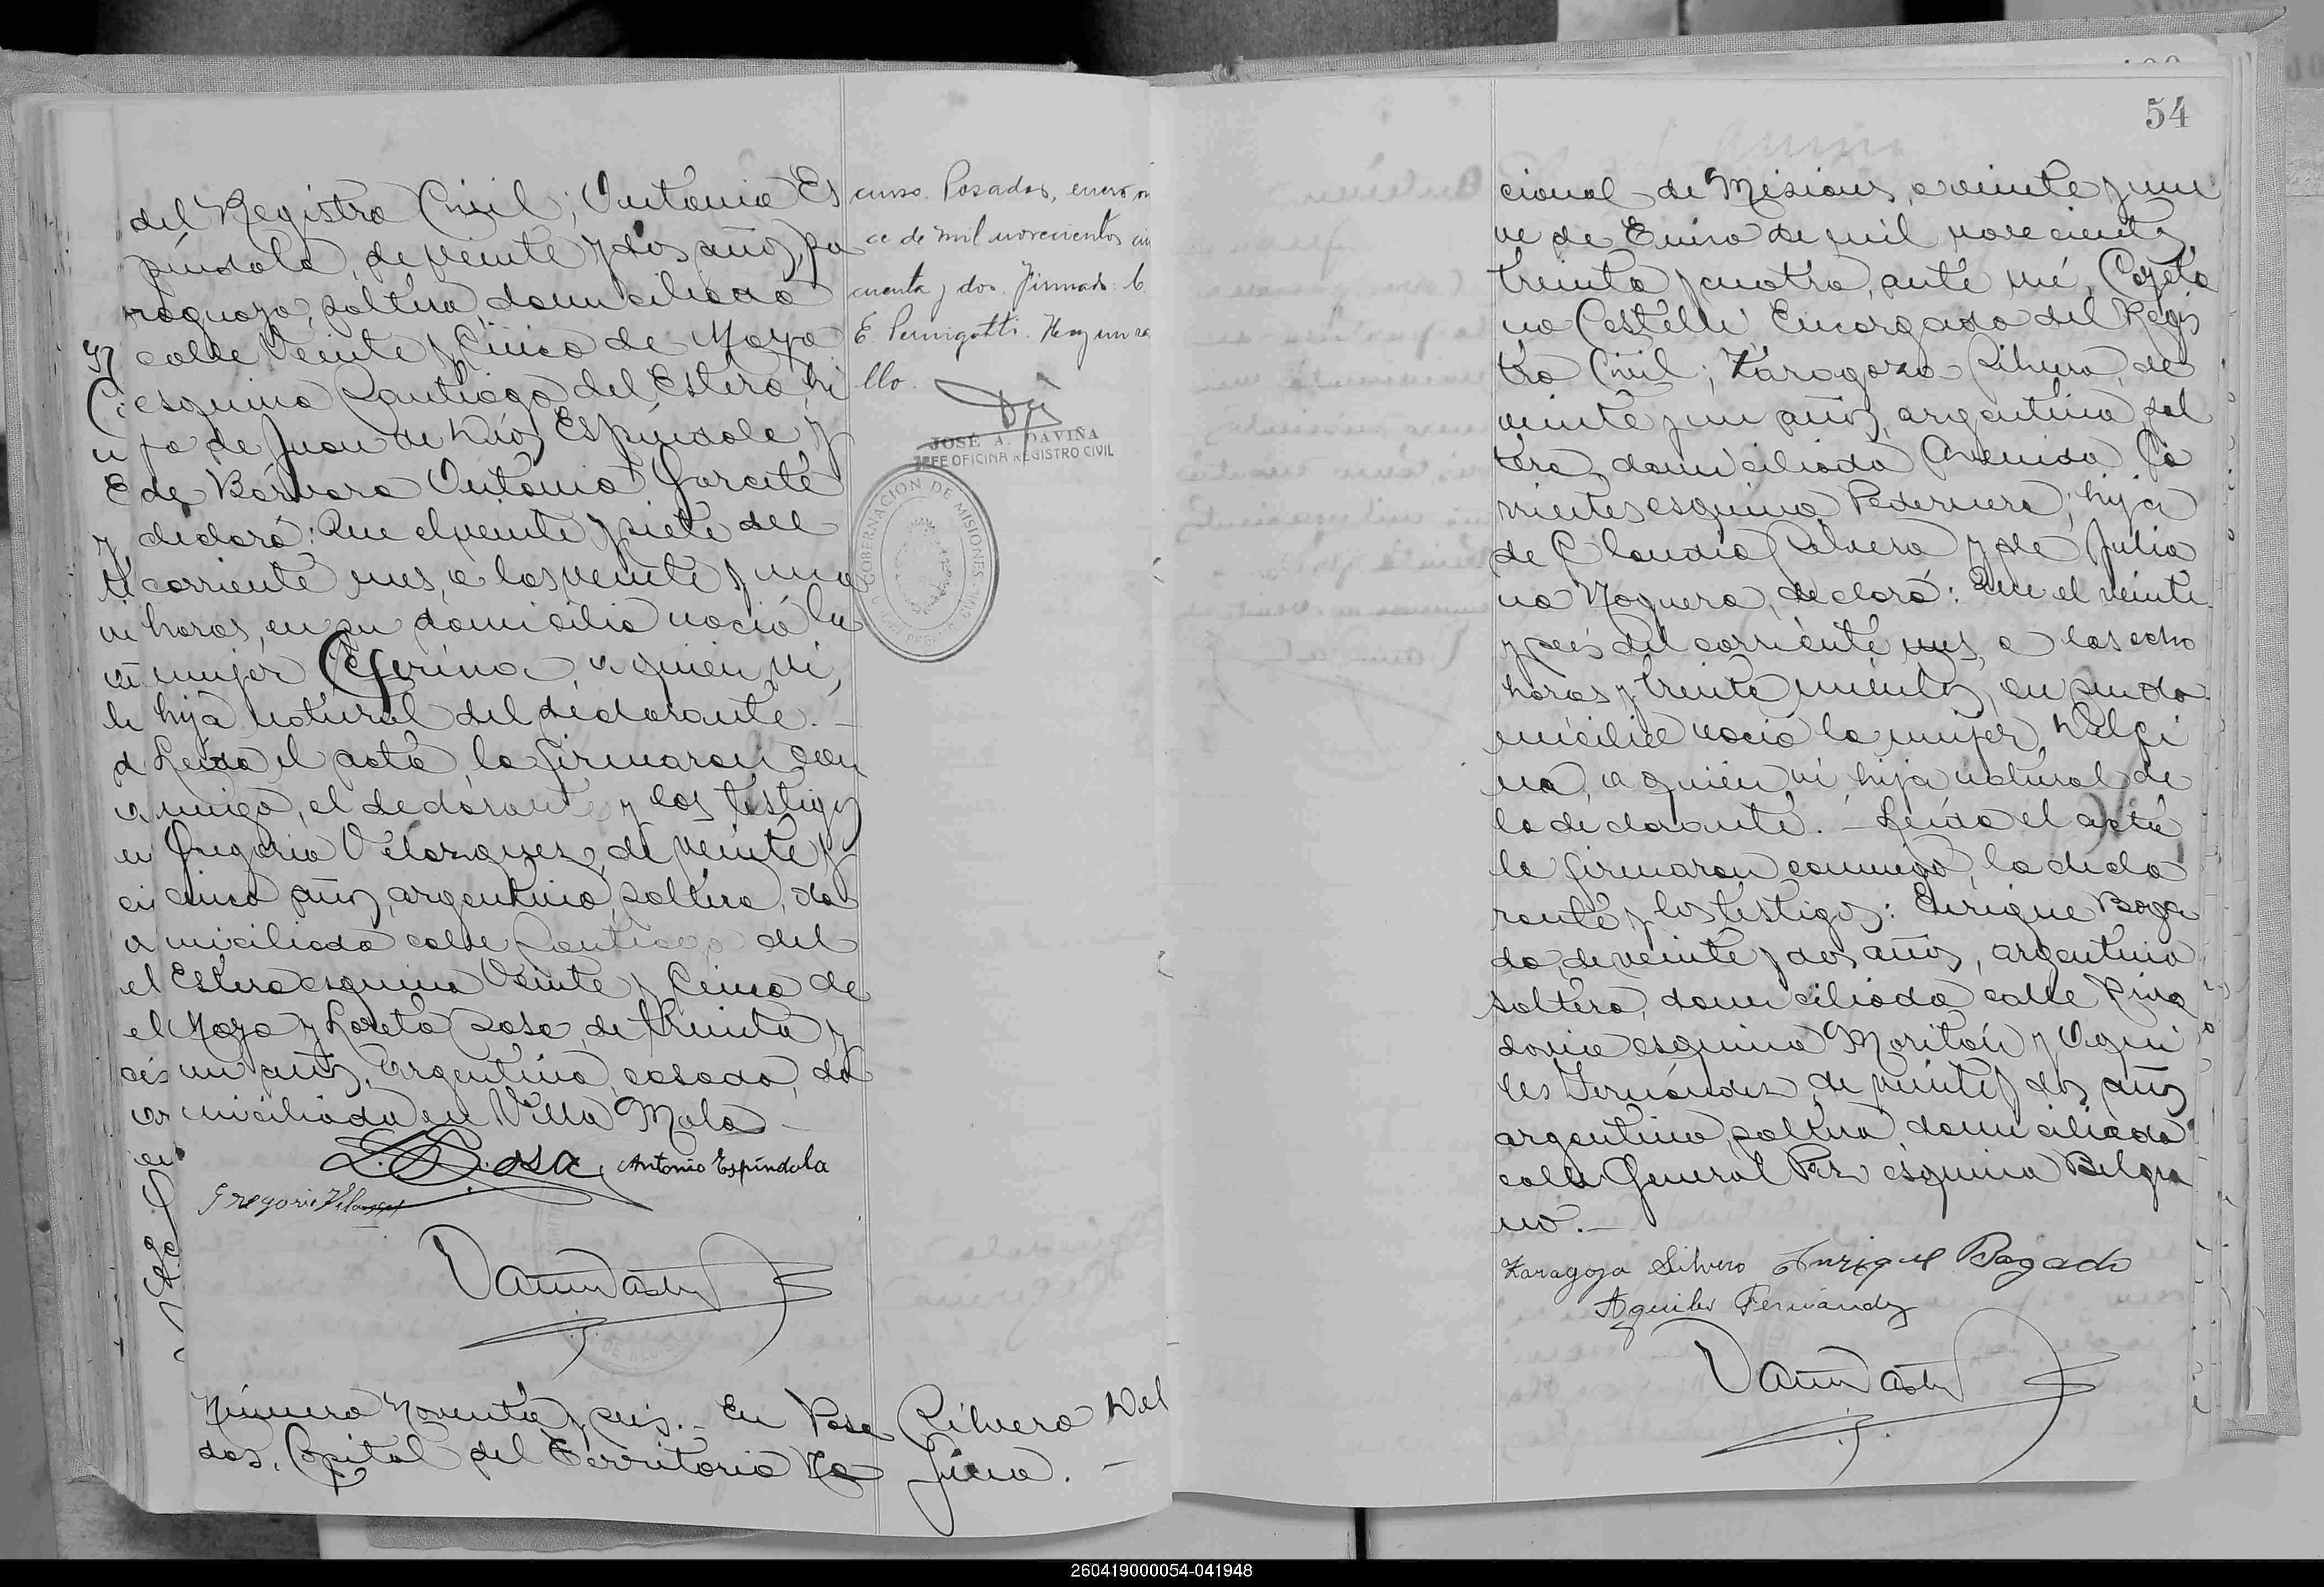 del Registro Civil; Antonio Es
píndola, de veinte y dos años, pa
raguayo, soltero, domiciliado
calle Veinte y Cinco de Mayo
esquina Santiago del Estero, hi
jo de Juan de Dios Espíndola y
de Bárbara Antonia Garcete
declaró: Que el veinte y siete del
corriente mes, a las veinte y una
horas, en su domicilio nació la
mujer Ceferina, a quien ví,
hija natural del declarante. —
Leída el acta, la firmaron con
migo, el declarante y los testigos
Gregorio Velazquez, de veinte y
cinco años, argentino, soltero, do
miciliado calle Santiago del
Estero esquina Veinte y Cinco de
Mayo y Loreto Sosa, de treinta y
un años, argentino, casado, do
miciliado en Villa Mola —
L. Sosa Antonio Espíndola
Gregorio Velazquez
Número Noventa y seis. — En Posa
das, Capital del Territorio Na
curso. Posadas, enero on
ce de mil novecientos cin
cuenta y dos. Firmado: C.
E. Pernigotti. Hay un se
llo.
JOSÉ A. DAVIÑA
JEFE OFICINA REGISTRO CIVIL
GOBERNACION DE MISIONES
Silvero Del
fina. —
54
cional de Misiones, a veinte y nue
ve de Enero de mil novecientos
treinta y cuatro, ante mí, Cayeta
no Castelli, Encargado del Regis
tro Civil; Zaragoza Silvero, de
veinte y un años, argentina, sol
tera, domiciliada Avenida Co
rrientes esquina Pedernera; hija
de Claudio Silvero y de Julia
na Noguera, declaró: Que el veinte
y seis del corriente mes, a las ocho
horas y treinta minutos, en su do
micilio nació la mujer, Delfi
na, a quien ví, hija natural de
la declarante. — Leída el acta
la firmaron conmigo, la decla
rante y los testigos: Enrique Boga
do, de veinte y dos años, argentino
soltero, domiciliado calle Riva
davia esquina Maritoín y Aqui
les Fernández, de veinte y dos años
argentino, soltero, domiciliado
calle General Paz esquina Belgra
no. —
Zaragoza Silvero Enrique Bogado
Aquiles Fernández
260419000054-041948